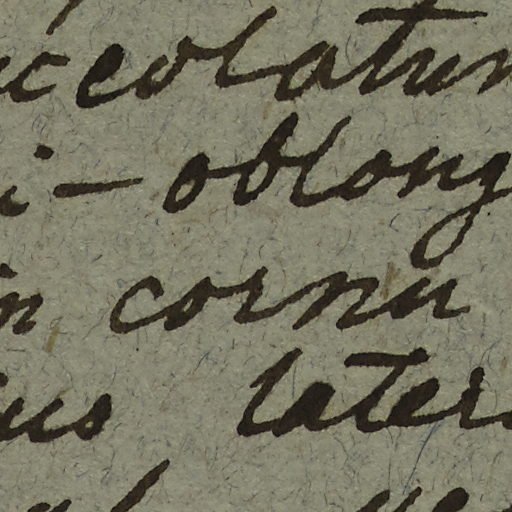 ceolatum
i - oblong
in cornu
us later